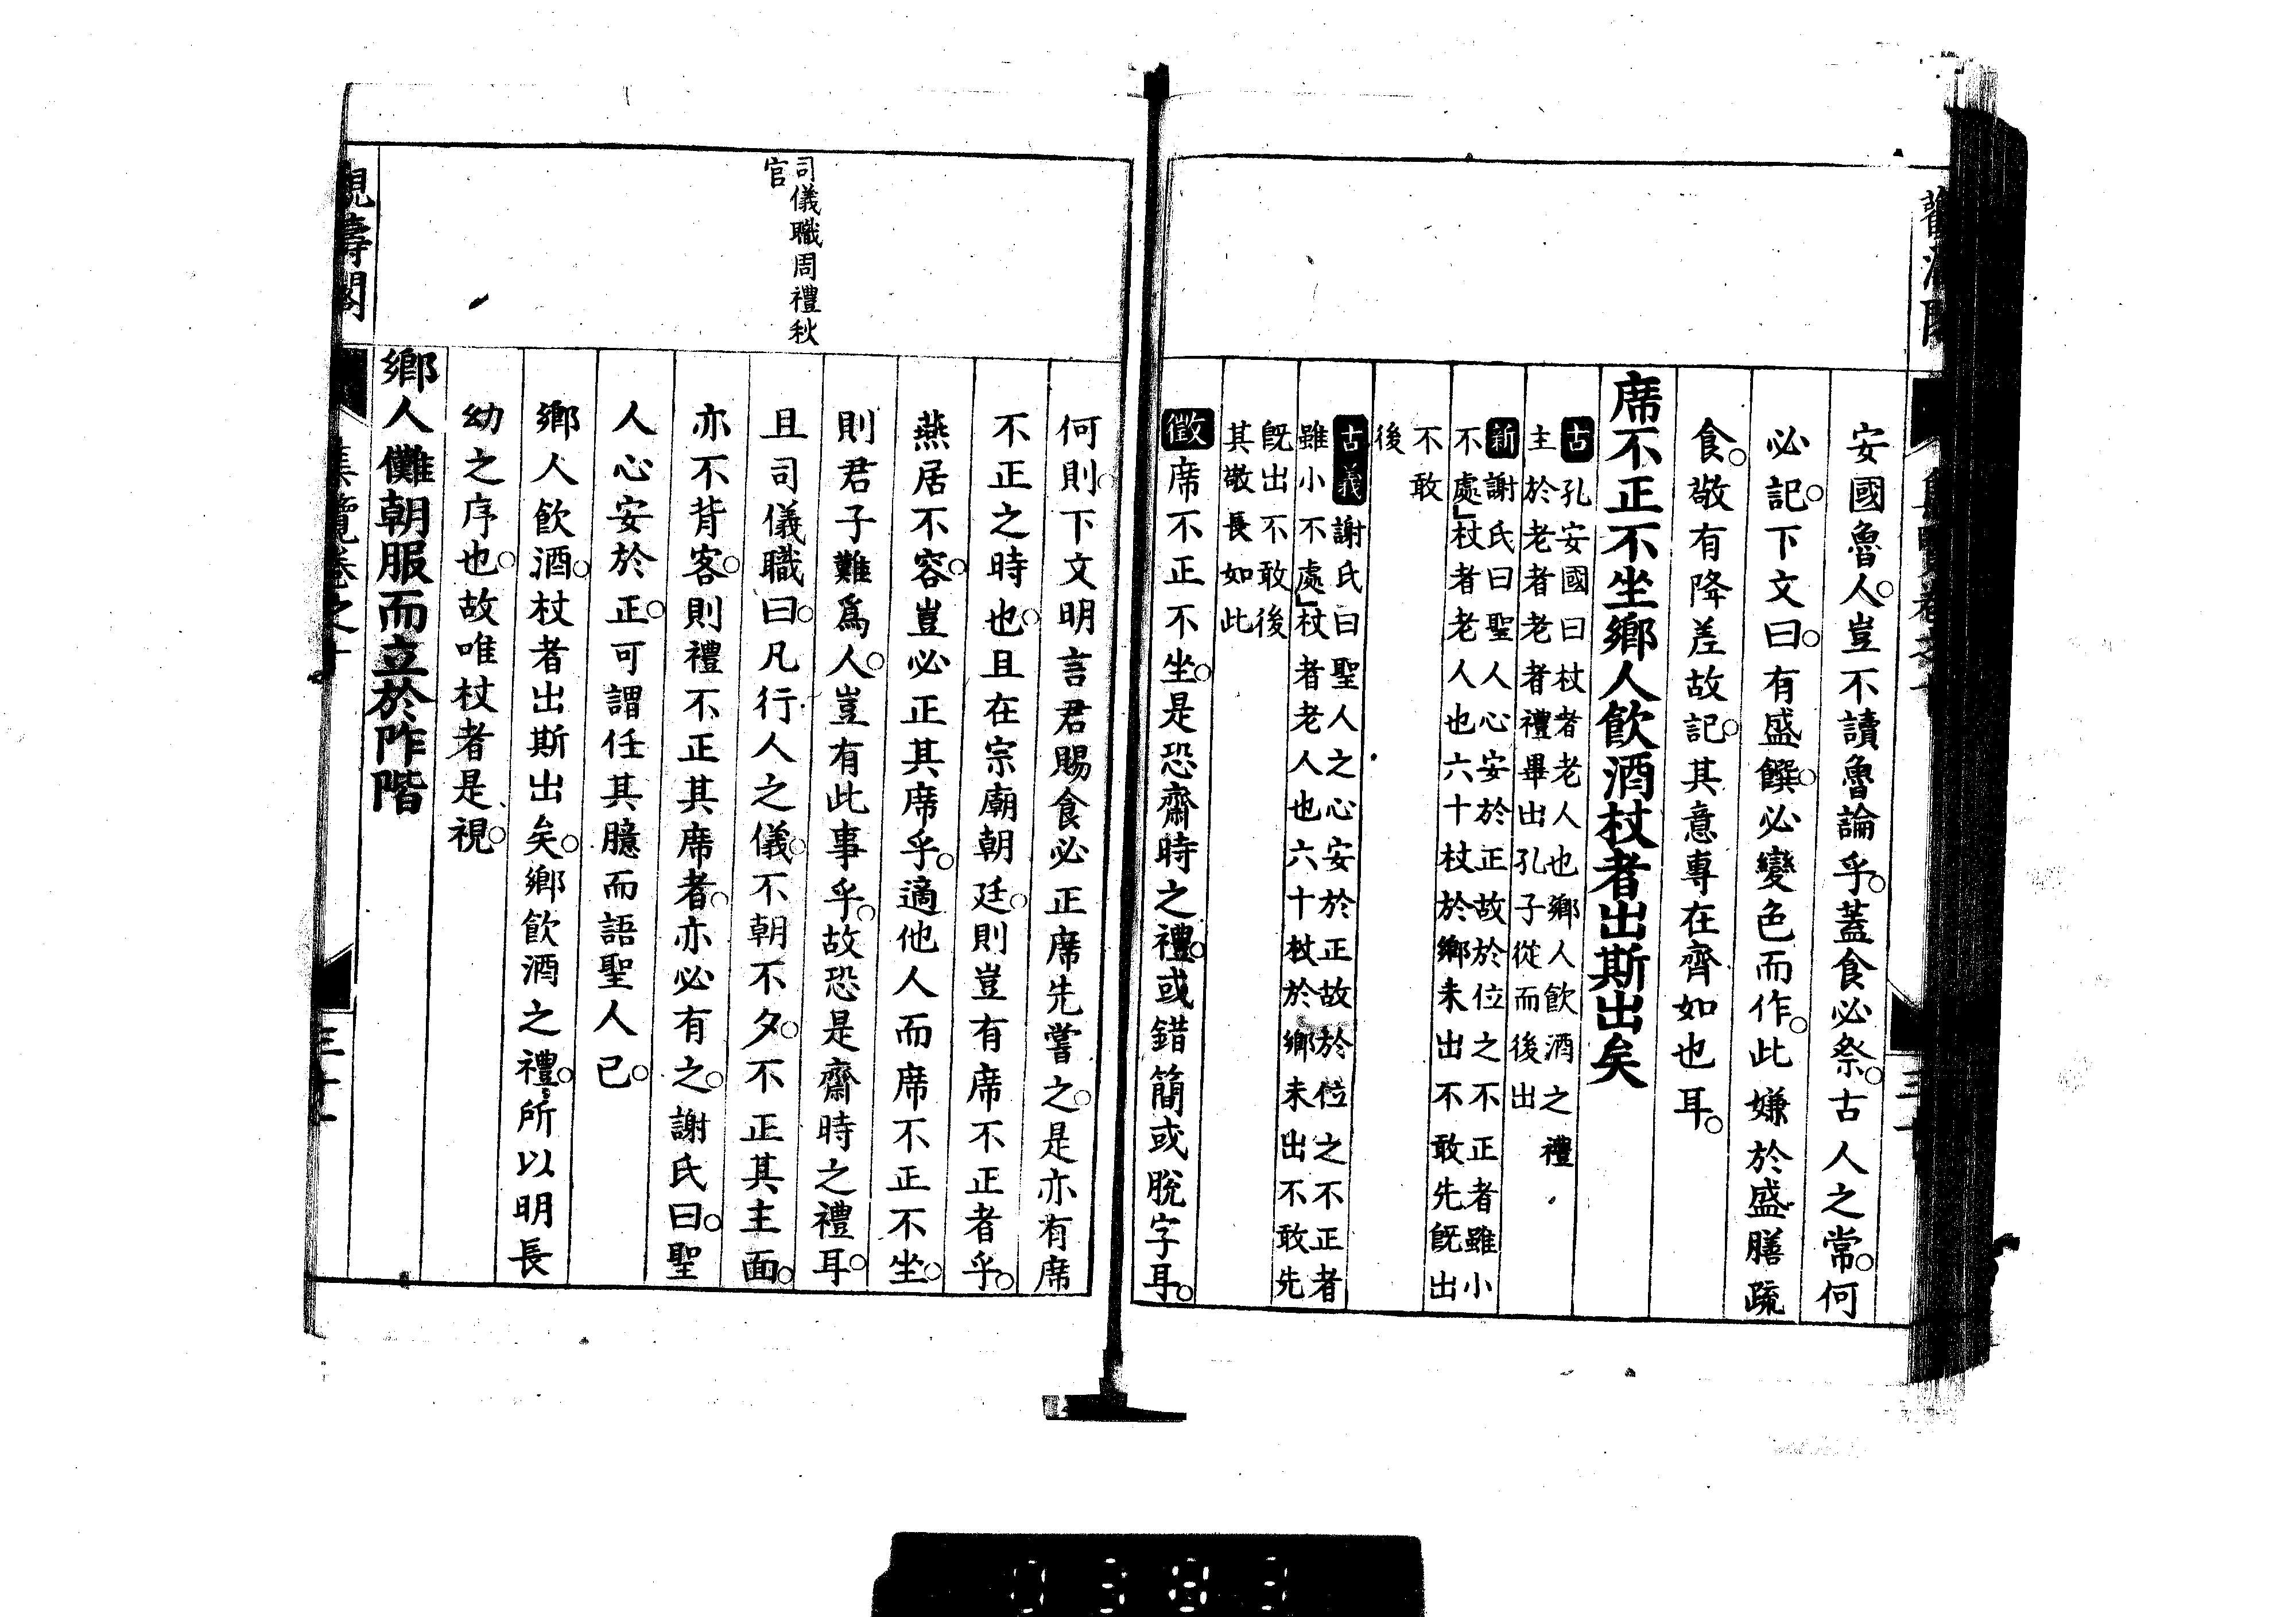 安國魯人。豈不讀魯論乎。蓋食必祭。古人之常。何
必記。下文曰。有盛饌。必變色而作。此嫌於盛膳疏
食。敬有降差故記。其意專在齊如也耳。
席不正不坐鄉人飲酒杖者出斯出矣
古 孔安國曰杖者老人也鄉人飲酒之禮
主於老者老者禮畢出孔子從而後出
新 謝氏曰聖人心安於正故於位之不正者雖小
不處」杖者老人也六十杖於鄉未出不敢先既出
不敢
後
古義 謝氏曰聖人之心安於正故於位之不正者
雖小不處」杖者老人也六十杖於鄉未出不敢先
既出不敢後
其敬長如此
徵 席不正不坐。是恐齋時之禮。或錯簡或脫字耳。
司儀職周禮秋
官
何則。下文明言君賜食必正席先嘗之。是亦有席
不正之時也。且在宗廟朝廷。則豈有席不正者乎。
燕居不容。豈必正其席乎。適他人而席不正不坐。
則君子難爲人。豈有此事乎。故恐是齋時之禮耳。
且司儀職曰。凡行人之儀。不朝不夕。不正其主面。
亦不背客。則禮不正其席者。亦必有之。謝氏曰。聖
人心安於正。可謂任其臆而語聖人已。
鄉人飲酒。杖者出斯出矣。鄉飲酒之禮。所以明長
幼之序也。故唯杖者是視。
鄉人儺朝服而立於阼階
觀濤閣
集覽卷之十